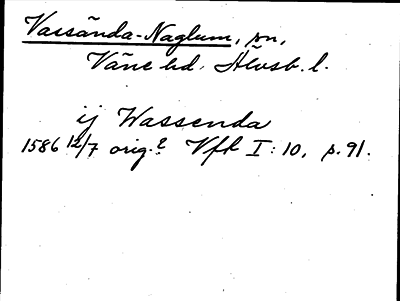 Vassända-Naglum, sn,
Väne hd. Älvsb. l.
ij Wassenda
1586 12/7 orig.? Vfl I: 10, p. 91.